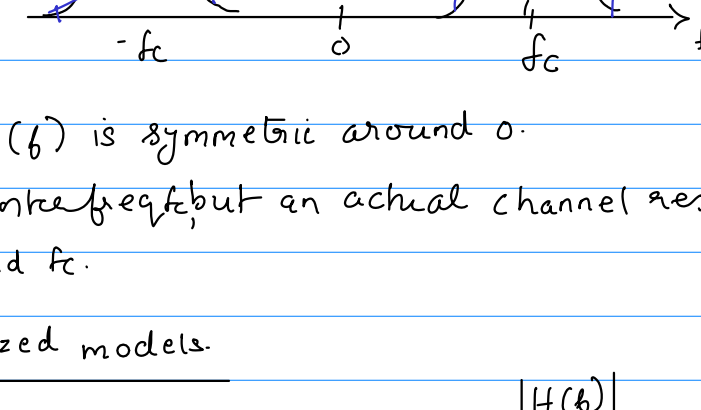 - fc 0 fc
(f) is symmetric around 0.
freq fc, but an actual channel res
d fc.
zed models.
|H(f)|